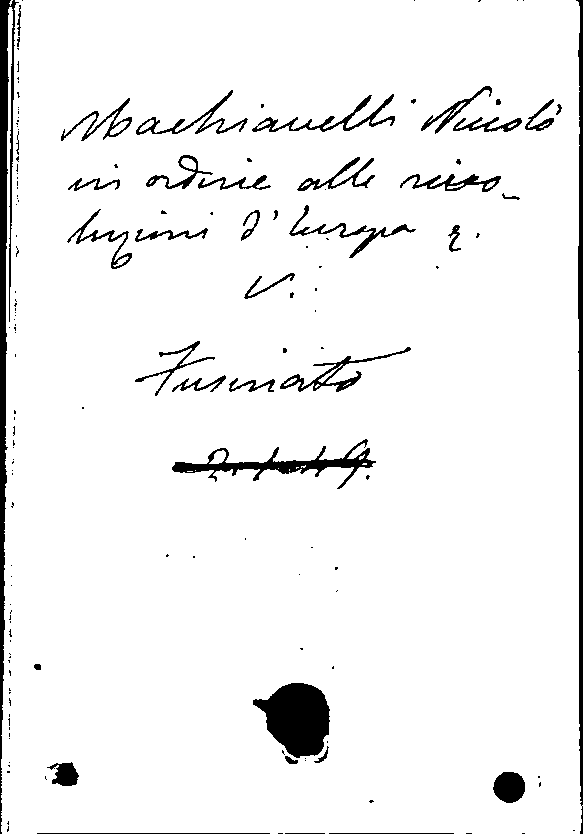 Machiavelli Nicolò
in ordine alle rivo-
luzioni d'Europa
V.
Fusinato